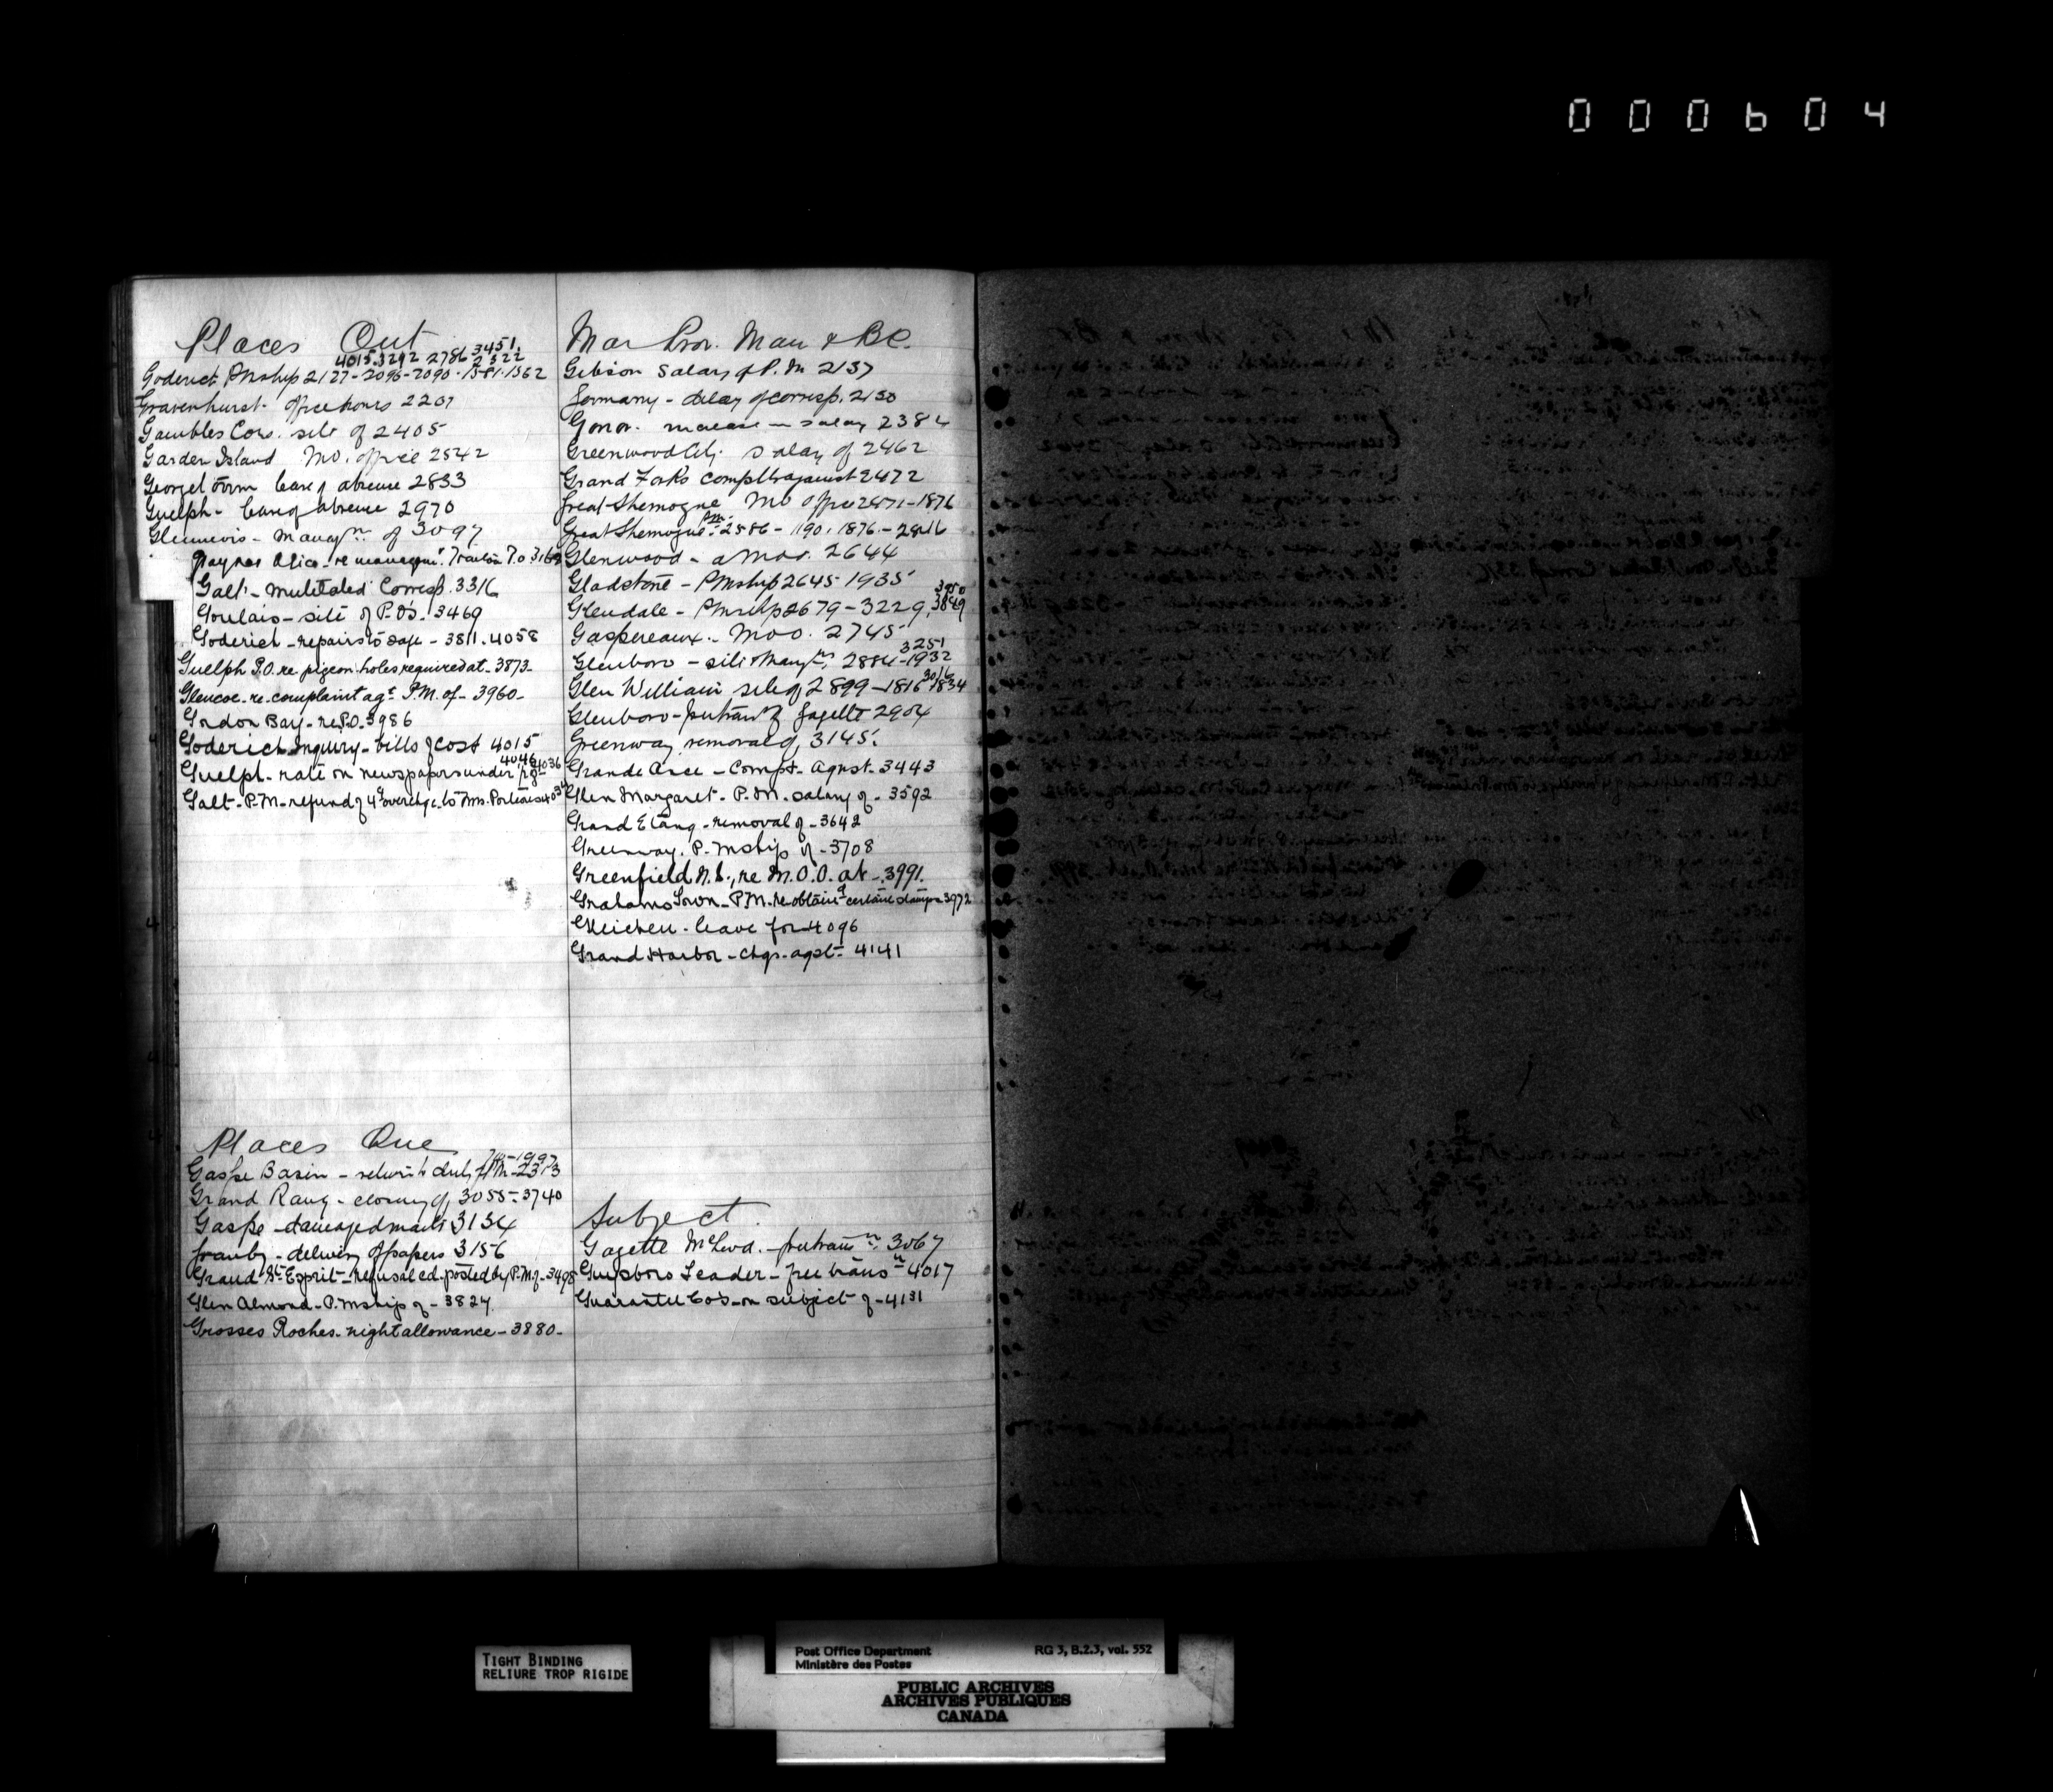 000604
Places Ont
4015.3292 2786 3451.
2322
Goderich PMship 2127-2096-2090-1581-1562
Gravenhurst. office hours 2207
Gambles Cors. site of 2405
Garden Island MO. office 2542
Georgetown leave of absence 2833
Guelph - leave of absence 2970
Glennevis - Manag^nt. of 3097
Gaynor Alice - re
Galt - mutilated Corresp. 3316
Goulais - site of P.O's. 3469
Goderich - repairs to safe - 3811. 4058
Guelph P.O. re pigeon holes required at - 3873 -
Glencoe. re. complaint ag^t P.M. of - 3960 -
Gordon Bay - re P.O. 3986
Goderich Inquiry - bills of cost 4015
4046 4036
Guelph - rate on newspapers under
Galt - P.M. - refund of 4¢ overchge. to Mrs. Porteous
Places Que
1997
Gaspe Basin - return to duty of P.M. - 2313
Grand Rang - closing of 3055 - 3740
Gaspe - damaged mails 3134
Granby - delivery of papers 3156
Grand St. Esprit - refusal cd. posted by P.M. of - 3498
Glen Almond - P.mship of - 3824
Grosses Roches - night allowance - 3880 -
Mar Prov. Man & BC.
Gibson Salary of P. M 2137
Germany - delay of corresp. 2150
Gonor. increase in salary 2382
Greenwood City. salary of 2462
Grand Forks complt against 2472
Great Shemogue MO office 2471-1876
Great Shemogue P.M. 2586 - 1190. 1876. - 2816
Glenwood - a M oo. 2644
Gladstone - PMship 2645-1935
3950
Glendale - PMship 2679-3229, 3849
Gaspereaux. - Moo. 2745
3251
Glenboro - site & Mang^nt, 2884-1932
3016
Glen William site of 2899-1816 1834
Glenboro - free trans^n of Gazette 2904
Greenway removal of, 3145.
Grande Anse - Compt. Agnst. 3443
Glen Margaret - P.M. salary of - 3592
Grand Etang - removal of - 3642
Greenway. P. Mship of - 3708
Greenfield N.S., re M.O.O. at - 3991.
Grahams Town - P.M. re obtain^g certain stamps 3972
Gleichen - leave for 4096
Grand Harbor - chgs. agst - 4141
Subject.
Gazette McLeod. - free trans^n. 3067
Guysboro Leader - free trans^n 4017
Guarantee Co's - on subject of - 4131
TIGHT BINDING
RELIURE TROP RIGIDE
Post Office Department RG 3, B.2.3, vol. 552
Ministère des Postes
PUBLIC ARCHIVES
ARCHIVES PUBLIQUES
CANADA